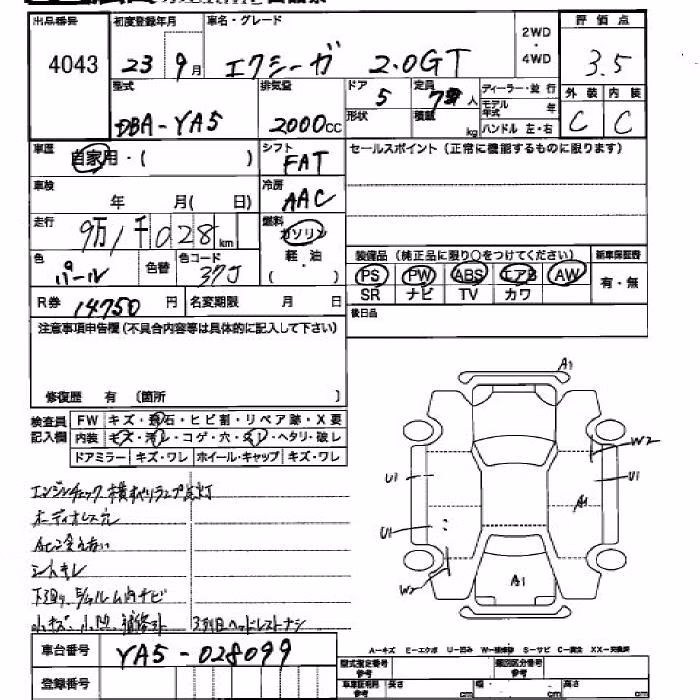 出品番号 初度登録年月 車名・グレード 2WD・4WD 評価点
4043 23 9月 エクシーガ 2.0GT 3.5
型式 排気量 ドア 定員 ディーラー・並行 外装 内装
DBA-YA5 2000cc 5 7 人 モデル年式 年 C C
形状 積載 kg ハンドル 左・右
車歴 自家用・( ) シフト FAT セールスポイント(正常に機能するものに限ります)
車検 年 月( 日) 冷房 AAC
走行 9万1千028km 燃料 ガソリン 軽・油 ( )
色 パール 色替 色コード 37J 装備品(純正品に限り○をつけてください) 新車保証書
PS PW ABS エアB AW 有・無
SR ナビ TV カワ
R券 14750円 名変期限 月 日 後日品
注意事項申告欄(不具合内容等は具体的に記入して下さい)
修復歴 有 (箇所 )
検査員記入欄 FW キズ・飛石・ヒビ割・リペア跡・X要
内装 キズ・汚レ・コゲ・穴・ ・ヘタリ・破レ
ドアミラー キズ・ワレ ホイール・キャップ キズ・ワレ
A1
W2
U1 U1
A1
U1
W2
A1
エンジンチェック 点灯
オーディオレス穴
シートキレ
小キズ、小凹、補修跡 3列目ヘッドレストナシ
A-キズ E-エクボ U-凹み W-補修跡 S-サビ C-腐食 XX-交換済
車台番号 YA5-028099
型式指定番号 参考 類別区分番号 参考
登録番号
車車証明用 参考 長さ cm 幅 cm 高さ cm